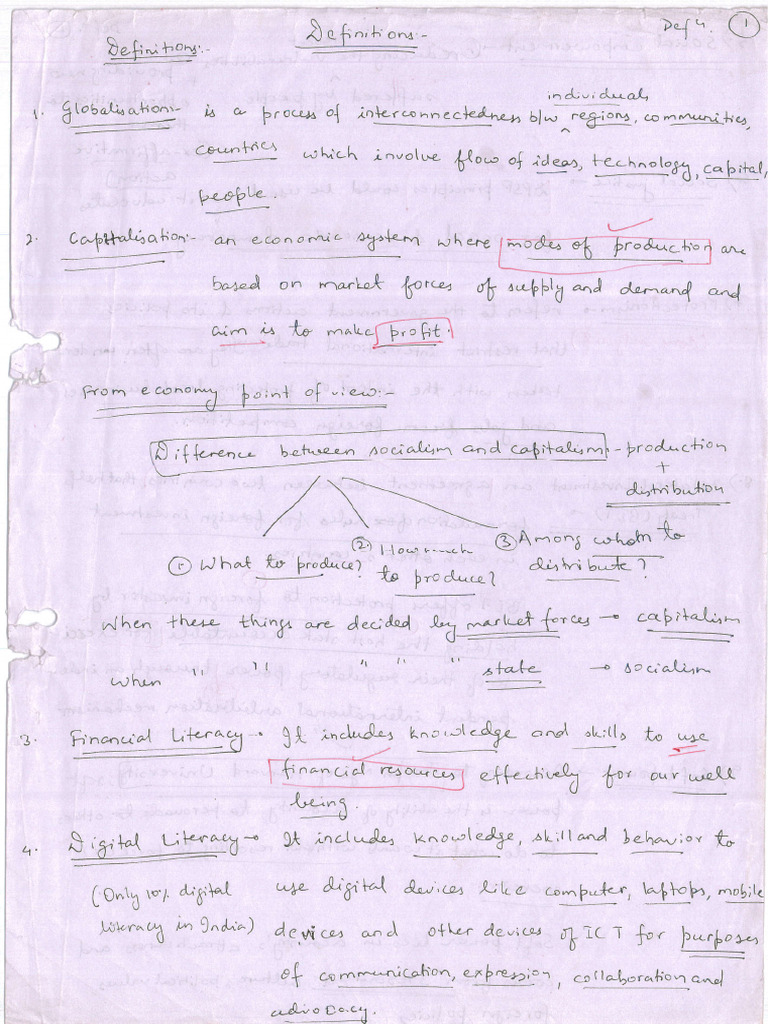 Def 4. 1
Definitions:-
Definitions:-
individuals
1. Globalisation:- is a process of interconnectedness b/w ^ regions, communities,
countries which involve flow of ideas, technology, capital,
people.
2. Capitalisation:- an economic system where modes of production are
based on market forces of supply and demand and
aim is to make profit.
From economy point of view:-
Difference between socialism and capitalism:- production
+
distribution
① What to produce? ② How much to produce? ③ Among whom to distribute?
When these things are decided by market forces → capitalism
when " " " " " state → socialism
3. Financial Literacy → It includes knowledge and skills to use
financial resources effectively for our well
being.
4. Digital Literacy → It includes knowledge, skill and behavior to
(Only 10% digital use digital devices like computer, laptops, mobile
literacy in India) devices and other devices of ICT for purposes
of communication, expression, collaboration and
advodacy.